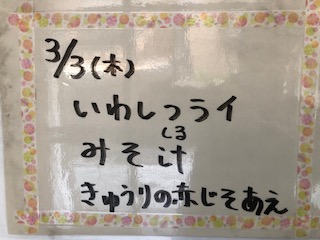 3/3(木)
いわしフライ
みそ汁
しる
きゅうりの赤じそあえ